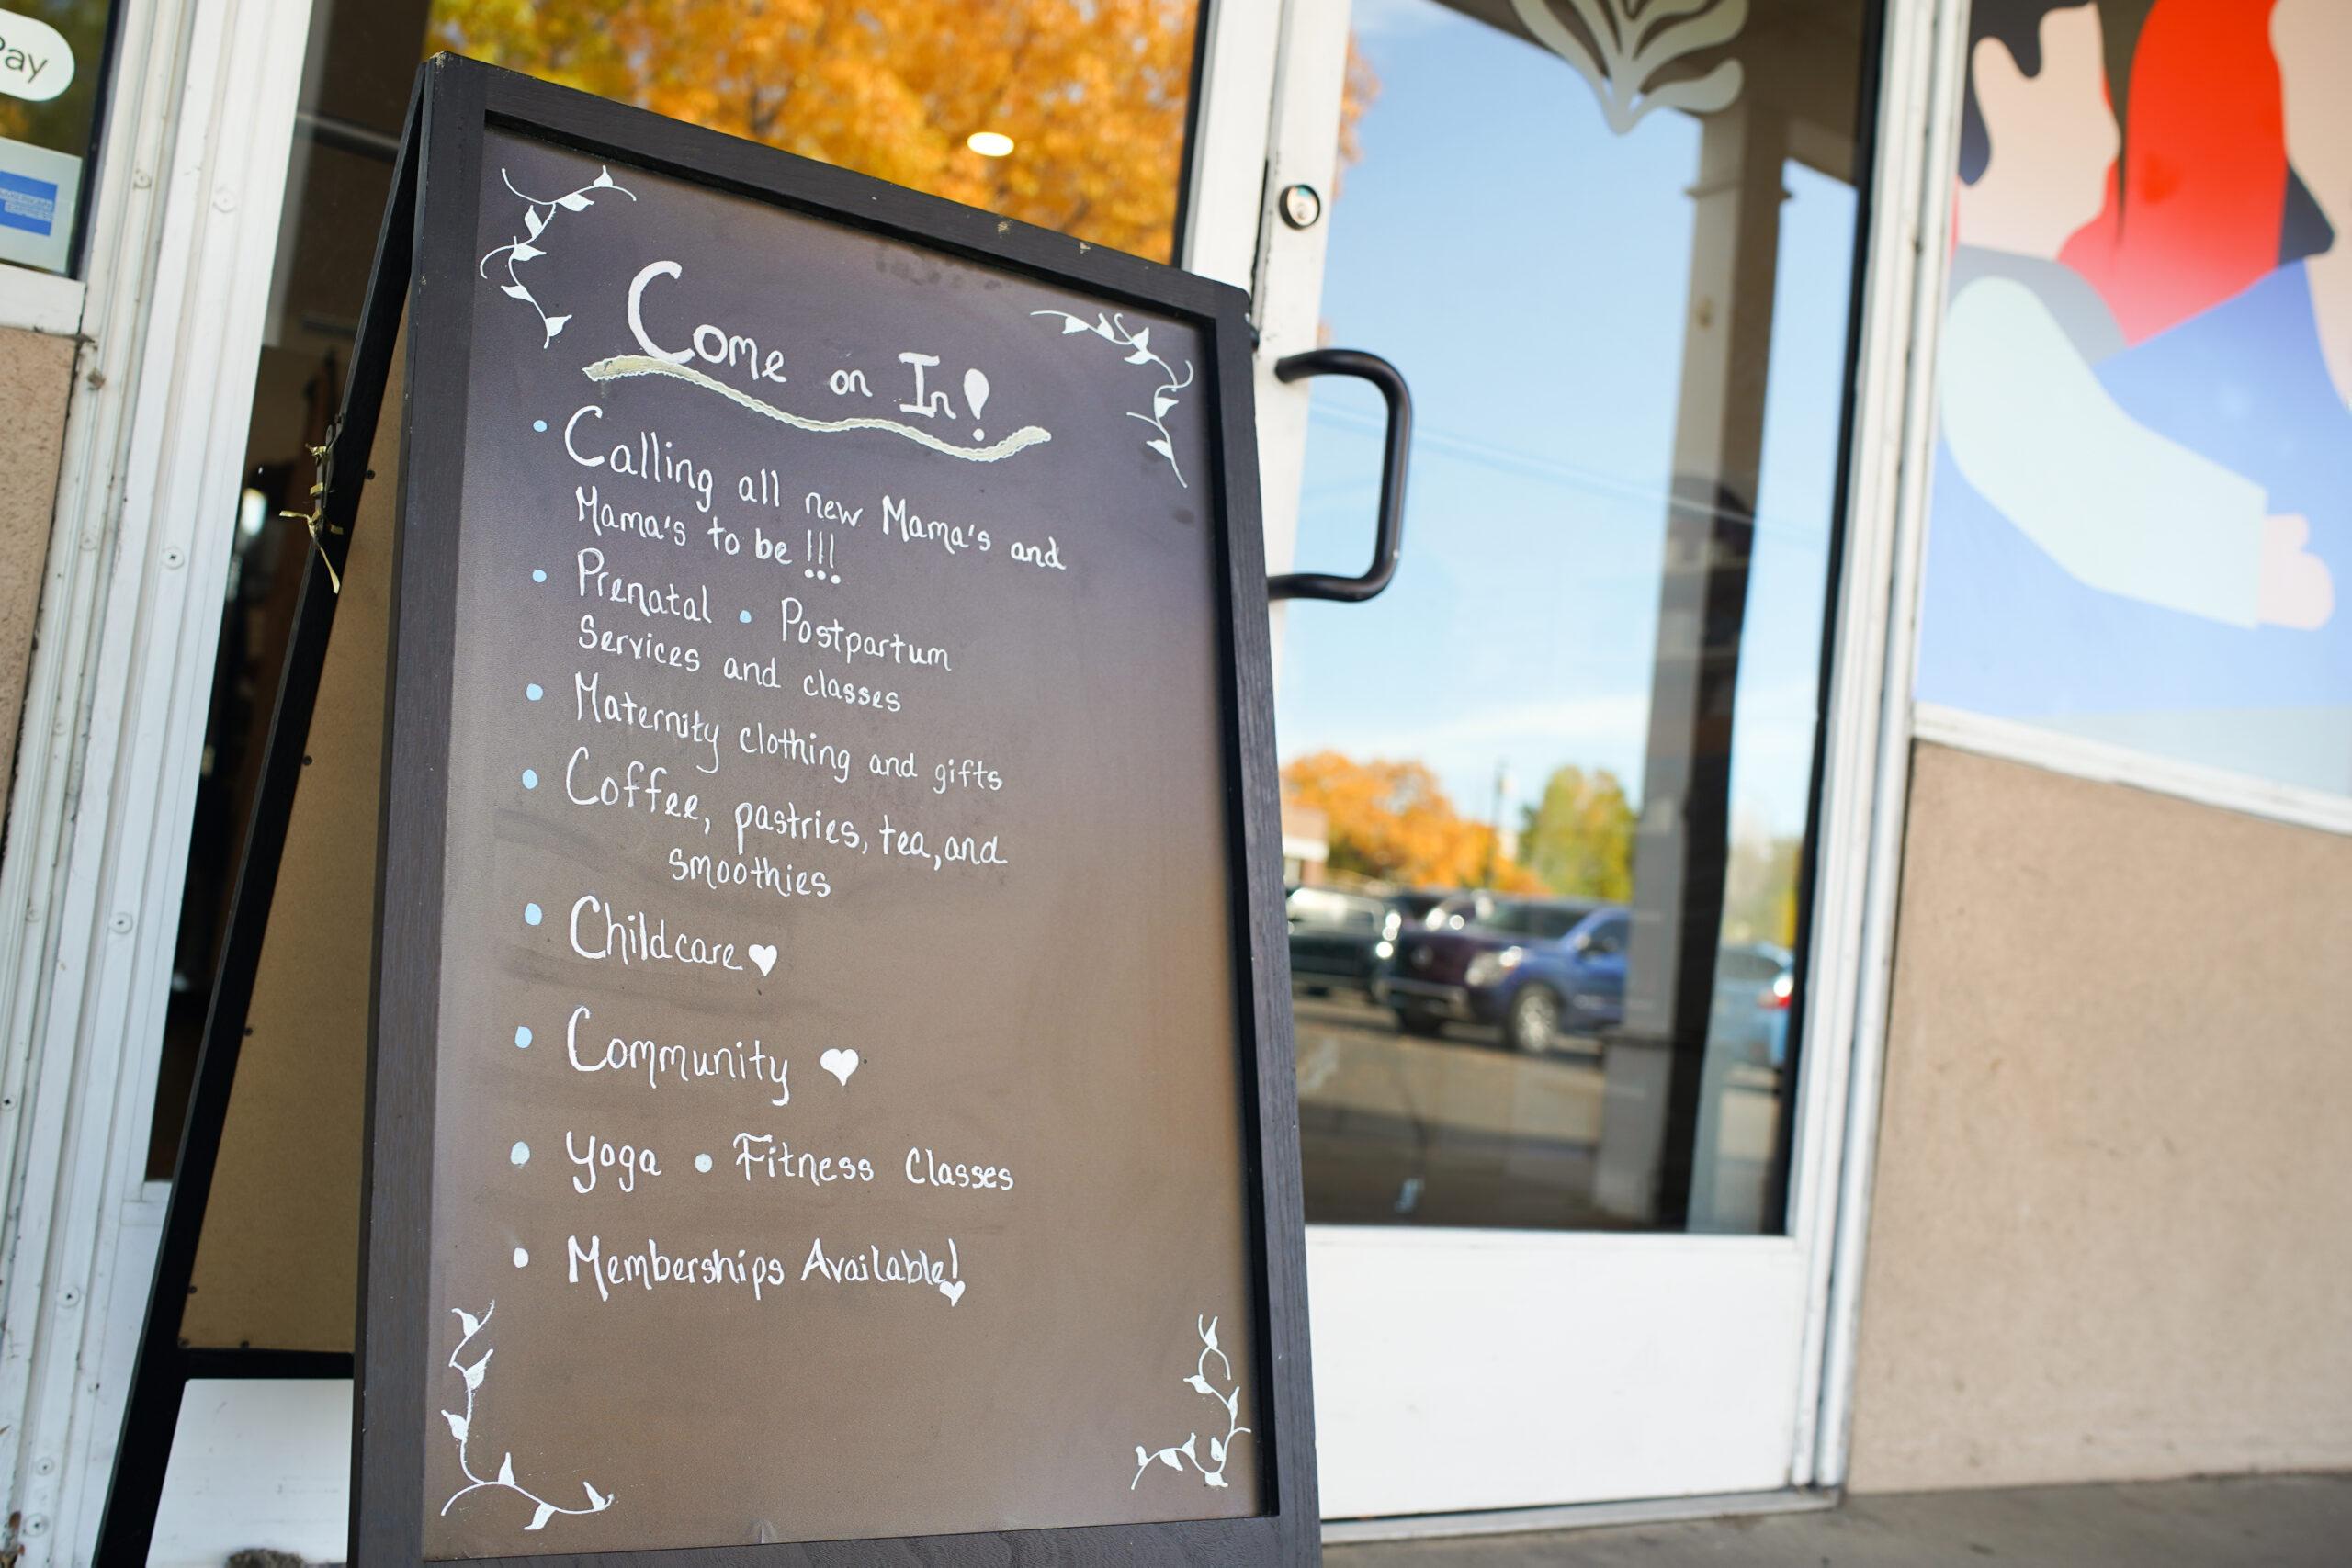 Pay
AMERICAN
EXPRESS
Come on In!
• Calling all new Mama's and
Mama's to be !!!
• Prenatal • Postpartum
Services and classes
• Maternity clothing and gifts
• Coffee, pastries, tea, and
smoothies
• Childcare ♥
• Community ♥
• Yoga • Fitness Classes
• Memberships Available!